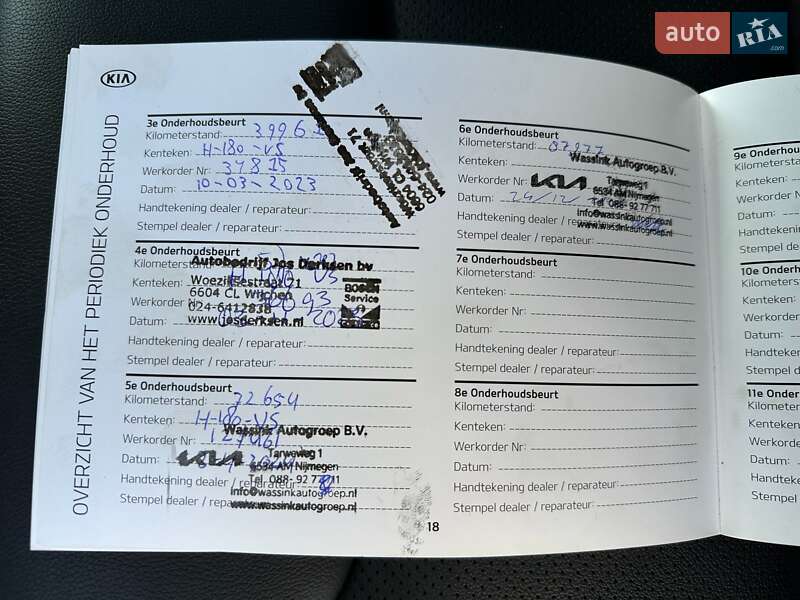 auto RIA .com
KIA
OVERZICHT VAN HET PERIODIEK ONDERHOUD
3e Onderhoudsbeurt
Kilometerstand:
Kenteken: H-180-VS
Werkorder Nr: 34815
Datum: 10-03-2023
Handtekening dealer / reparateur:
Stempel dealer / reparateur:
4e Onderhoudsbeurt
Autobedrijf Jos Derksen bv
Kilometerstand:
Kenteken:
Woeziksestraat 71
6604 CL Wijchen
Werkorder Nr:
024-6412838
Datum:
www.josderksen.nl
BOSCH
Service
Handtekening dealer / reparateur:
Stempel dealer / reparateur:
5e Onderhoudsbeurt
Kilometerstand: 72654
Kenteken: H-180-VS
Wassink Autogroep B.V.
Werkorder Nr:
Tarweweg 1
Datum:
KIA
6534 AM Nijmegen
Tel. 088- 92 77 711
Handtekening dealer / reparateur:
info@wassinkautogroep.nl
Stempel dealer / reparateur:
www.wassinkautogroep.nl
6e Onderhoudsbeurt
Kilometerstand:
Wassink Autogroep B.V.
Kenteken:
Werkorder Nr:
KIA
Tarweweg 1
6534 AM Nijmegen
Datum:
Tel. 088- 92 77 711
info@wassinkautogroep.nl
Handtekening dealer / reparateur:
www.wassinkautogroep.nl
Stempel dealer / reparateur:
7e Onderhoudsbeurt
Kilometerstand:
Kenteken:
Werkorder Nr:
Datum:
Handtekening dealer / reparateur:
Stempel dealer / reparateur:
8e Onderhoudsbeurt
Kilometerstand:
Kenteken:
Werkorder Nr:
Datum:
Handtekening dealer / reparateur:
Stempel dealer / reparateur:
18
9e Onderhoudsbeurt
Kilometerstand
Kenteken:
Werkorder Nr:
Datum:
Handtekening
Stempel deale
10e Onderhoud
Kilometerstand
Kenteken:
Werkorder Nr:
Datum:
Handtekening
Stempel deale
11e Onderhoud
Kilometerstand
Kenteken:
Werkorder Nr:
Datum:
Handtekening
Stempel deale